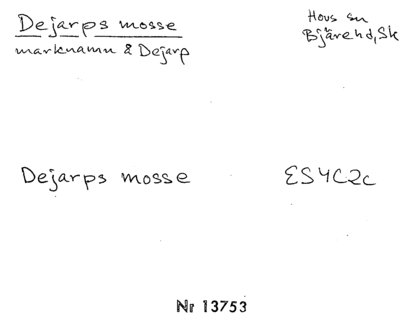 Dejarps mosse
marknamn & Dejarp
Hovs sn
Bjäre hd, Sk
Dejarps mosse
ES4C2c
Nr 13753